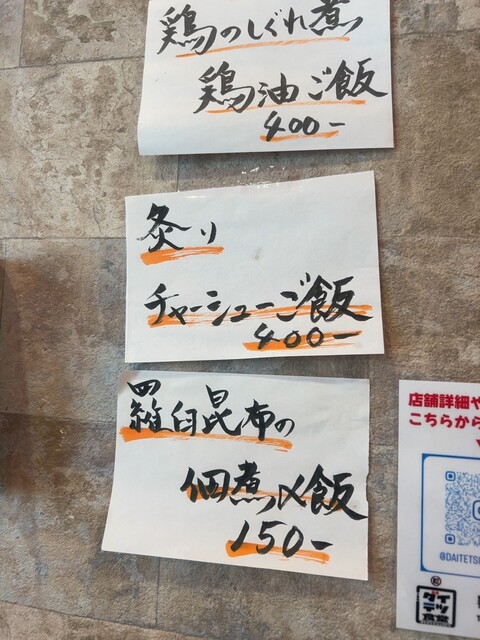 鶏のしぐれ煮
鶏油ご飯
400-
炙り
チャーシューご飯
400-
羅臼昆布の
佃煮〆飯
150-
店舗詳細や
こちらから
@DAITETS
ダイ
テツ
食堂